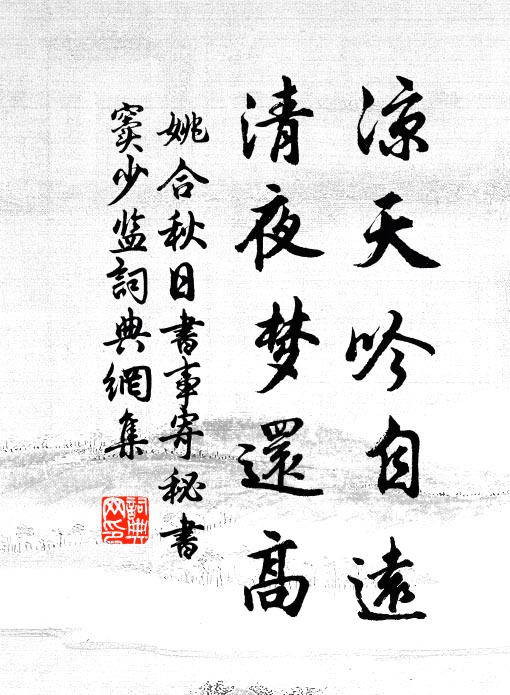 涼天吟自遠
清夜梦還高
姚合秋日書事寄秘書
竇少监詞典網集
詞典网印